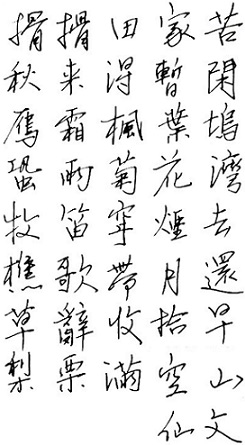 苦閑塢灣去還早山文
家暫葉花煙月拾空仙
田得楓菊寧帶收滿
搰来霜雨笛歌辭栗
搰秋鴈蛩牧樵草梨